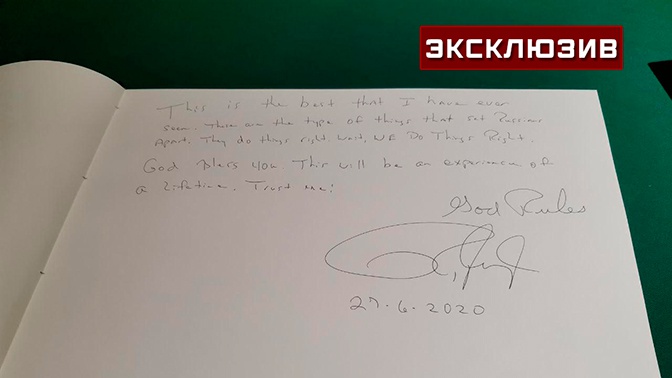 ЭКСКЛЮЗИВ
This is the best that I have ever
seen. These are the type of things that set Russians
Apart. They do things right. Wait, WE Do Things Right.
God bless you This will be an experience of
a lifetime. Trust me!
God Rules
27.6.2020